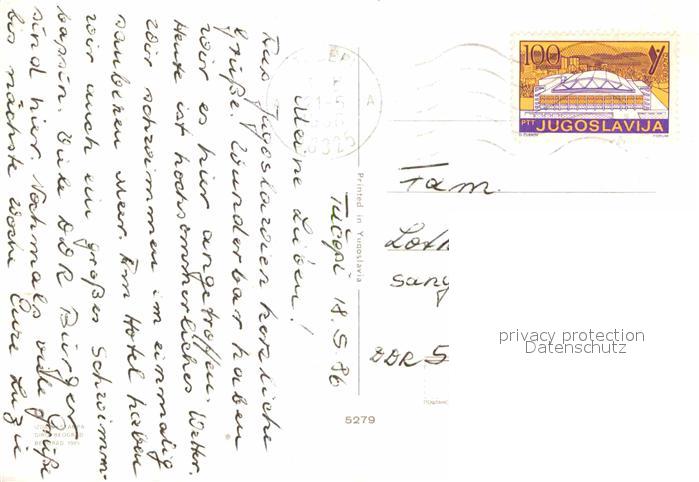 Tučepi 18.5.86
Meine Lieben!
Aus Jugoslawien herzliche
Grüße. Wunderbar haben
wir es hier angetroffen.
Heute ist hochsommerliches Wetter.
Wir schwimmen im einmalig
sauberen Meer. Im Hotel haben
wir auch ein großes Schwimm-
bassin. Viele DDR Bürger
sind hier. Nochmals viele Grüße
bis nächste Woche Eure
Printed in Yugoslavia
5279
100
PTT JUGOSLAVIJA
Fam.
DDR 5
privacy protection
Datenschutz